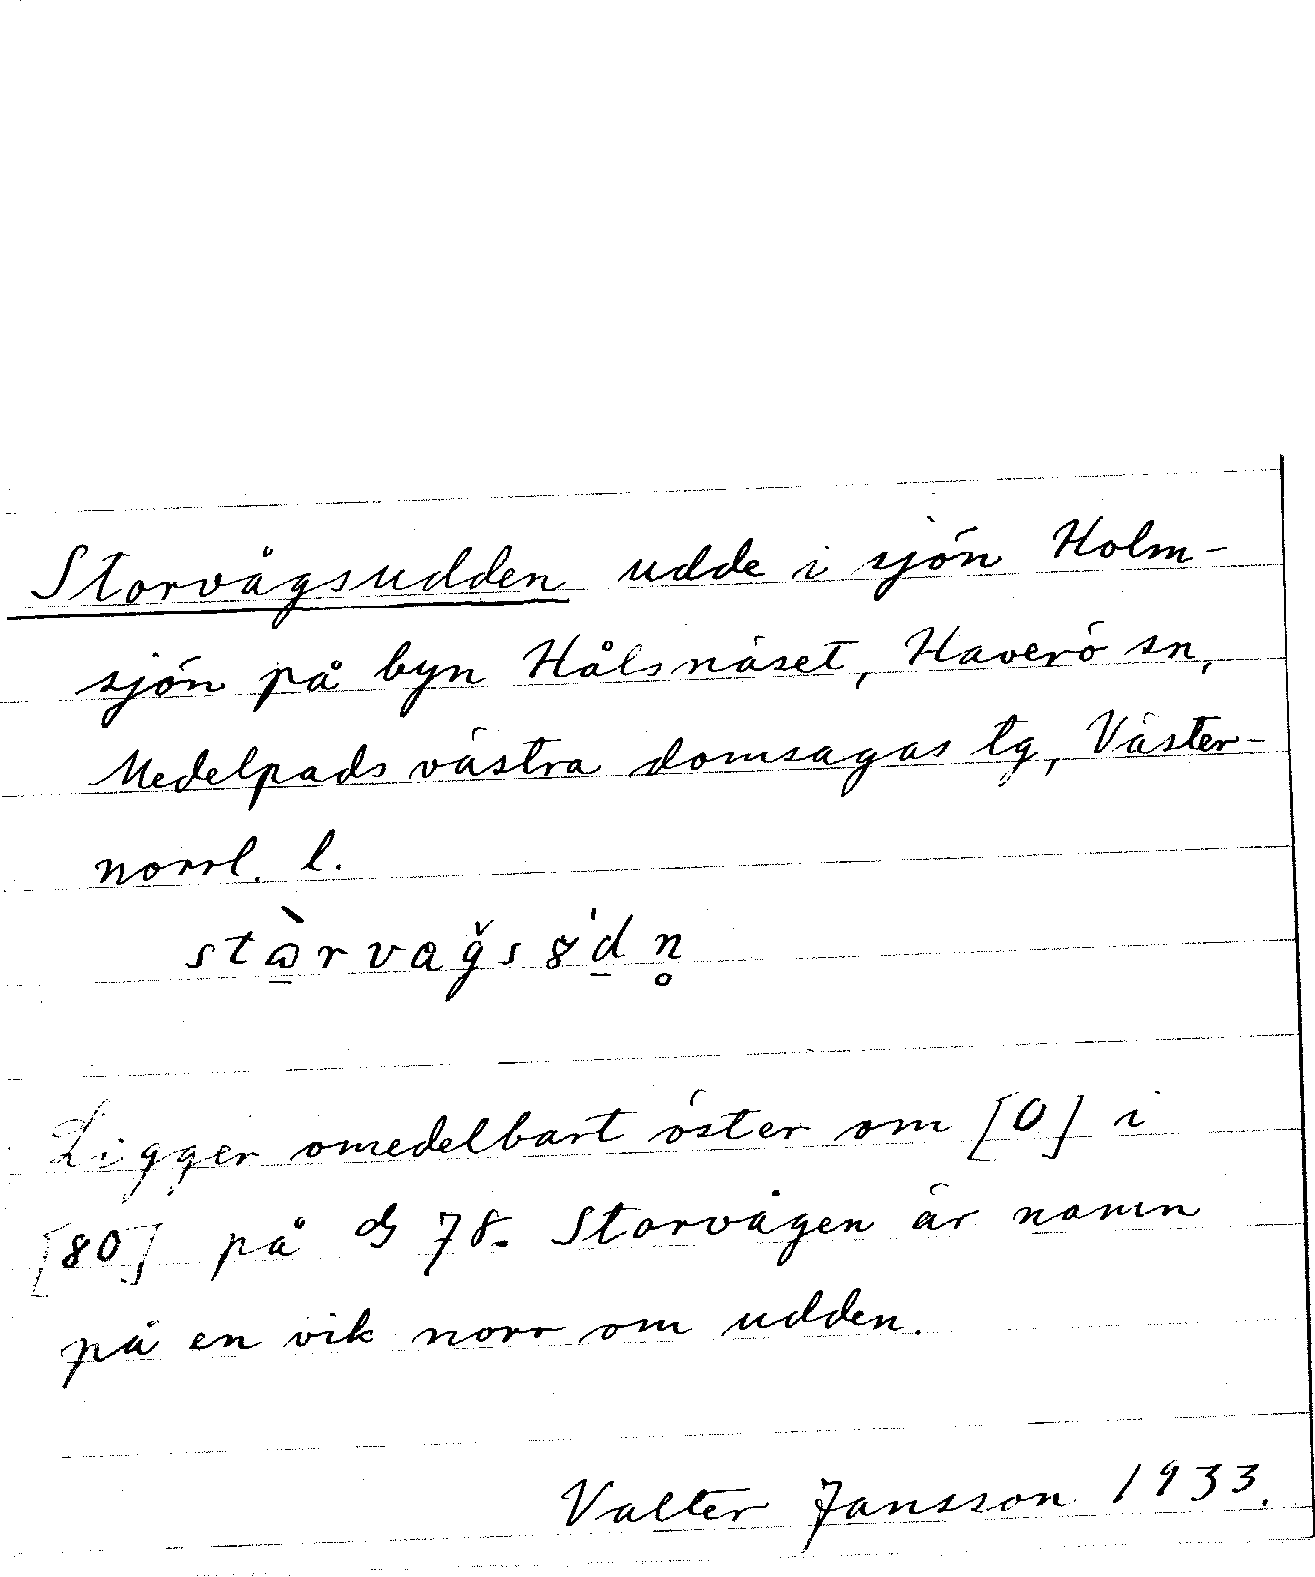 Storvågsudden udde i sjön Holm-
sjön på byn Hålsnäset, Haverö sn,
Medelpads västra domsagas tg, Väster-
norrl. l.
Ligger omedelbart öster om [0] i
[80] på 78. Storvågen är namn
på en vik norr om udden.
Valter Jansson 1933.